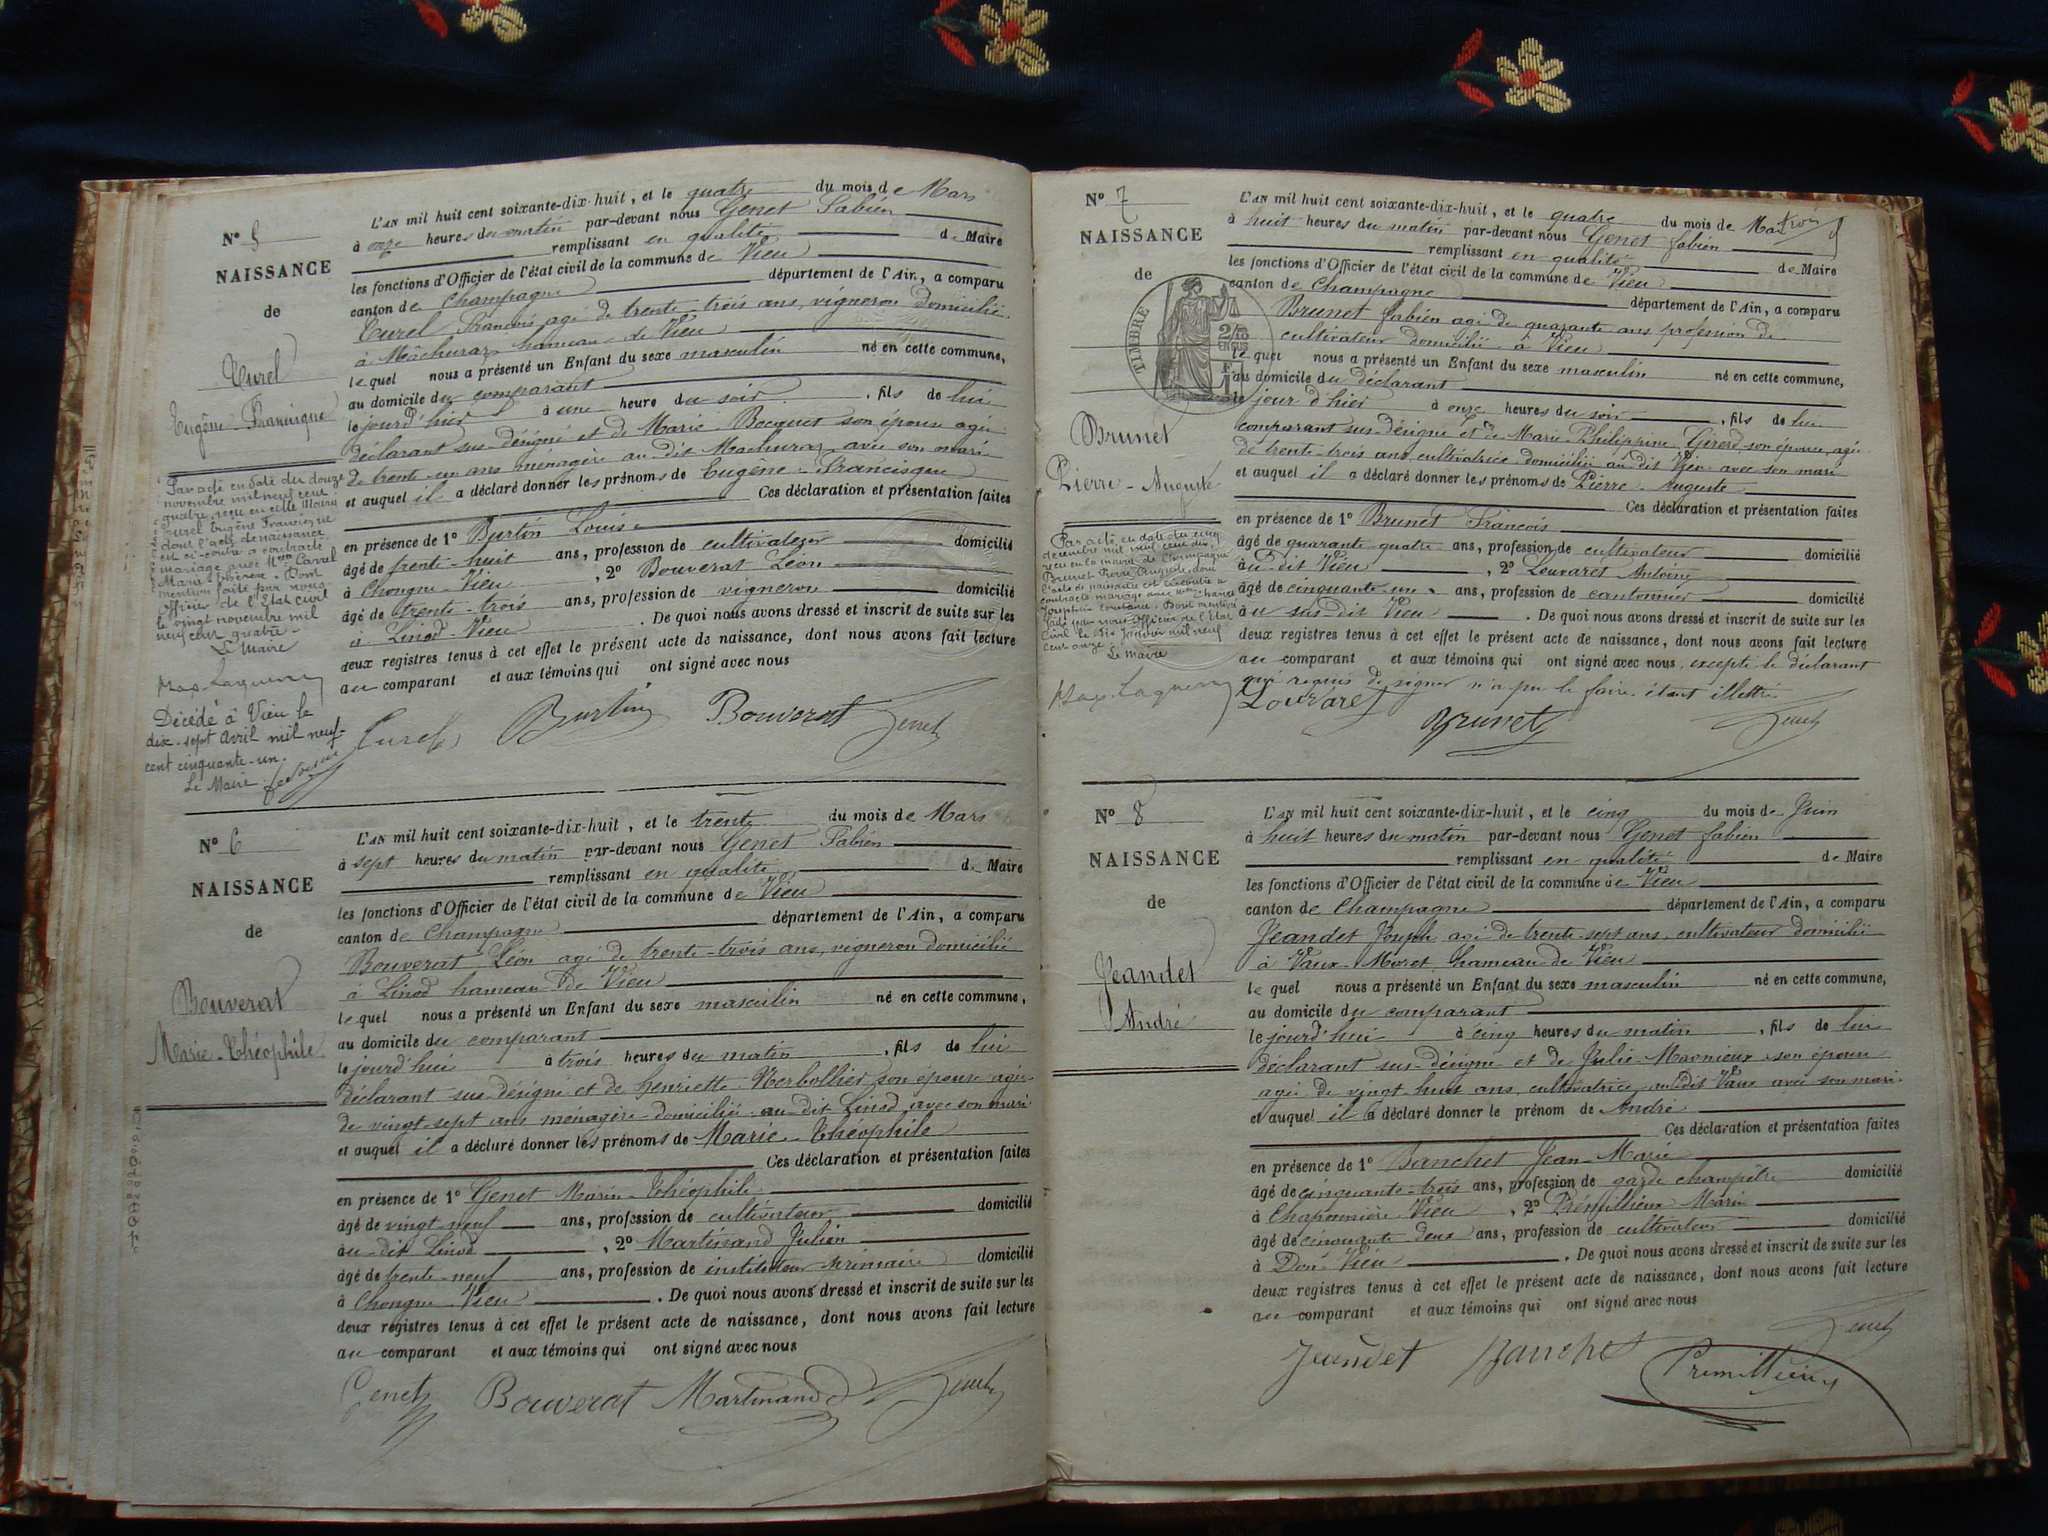 N° 5
NAISSANCE
de
Curel
Eugène-Francisque
Par acte en date du douze
novembre mil neuf cent
quatre, reçu en cette Mairie
Curel Eugène Francisque
dont l'acte de naissance
est ci-contre a contracté
mariage avec Mlle Carval
Marie Dont
mention faite par nous
officier de l'Etat civil
le vingt novembre mil
neuf cent quatre.
Le Maire
Décédé à Vieu le
dix-sept avril mil neuf
cent cinquante-un.
Le Maire
L'AN mil huit cent soixante-dix-huit, et le quatre du mois de Mars
à onze heures du matin par-devant nous Genet Fabien
remplissant en qualité de Maire
les fonctions d'Officier de l'état civil de la commune de Vieu
canton de Champagne département de l'Ain, a comparu
Curel François agé de trente-trois ans, vigneron domicilié
à Mâchuraz hameau de Vieu
lequel nous a présenté un Enfant du sexe masculin né en cette commune,
au domicile du comparant
le jourd'hier à une heure du soir, fils de lui
déclarant sus-désigné et de Marie Bocquet son épouse agée
de trente-un ans ménagère au dit Machuraz avec son mari
et auquel il a déclaré donner les prénoms de Eugène-Francisque
Ces déclaration et présentation faites
en présence de 1° Burtin Louis
âgé de trente-huit ans, profession de cultivateur domicilié
à Chongne-Vieu, 2° Bouverat Léon
âgé de trente-trois ans, profession de vigneron domicilié
à Linod-Vieu. De quoi nous avons dressé et inscrit de suite sur les
deux registres tenus à cet effet le présent acte de naissance, dont nous avons fait lecture
au comparant et aux témoins qui ont signé avec nous
Curel Burtin Bouverat Genet
N° 6
NAISSANCE
de
Bouverat
Marie-Théophile
L'AN mil huit cent soixante-dix-huit, et le trente du mois de Mars
à sept heures du matin par-devant nous Genet Fabien
remplissant en qualité de Maire
les fonctions d'Officier de l'état civil de la commune de Vieu
canton de Champagne département de l'Ain, a comparu
Bouverat Léon agé de trente-trois ans, vigneron domicilié
à Linod hameau de Vieu
lequel nous a présenté un Enfant du sexe masculin né en cette commune,
au domicile du comparant
le jourd'hui à trois heures du matin, fils de lui
déclarant sus-désigné et de henriette Berbollier son épouse agée
de vingt-sept ans ménagère domiciliée au dit Linod avec son mari
et auquel il a déclaré donner les prénoms de Marie-Théophile
Ces déclaration et présentation faites
en présence de 1° Genet Marin-Théophile
âgé de vingt-neuf ans, profession de cultivateur domicilié
au dit Linod, 2° Martinand Julien
âgé de trente-neuf ans, profession de instituteur primaire domicilié
à Chongne Vieu. De quoi nous avons dressé et inscrit de suite sur les
deux registres tenus à cet effet le présent acte de naissance, dont nous avons fait lecture
au comparant et aux témoins qui ont signé avec nous
Genet Bouverat Martinand Genet
N° 7
NAISSANCE
de
TIMBRE
2/10
EN SUS
Brunet
Pierre-Auguste
Par acte en date du cinq
décembre mil neuf cent dix,
reçu en la mairie de Champagne
Brunet Pierre Auguste, dont
l'acte de naissance est ci-contre a
contracté mariage avec
Joséphine Dont mention
faite par nous officier de l'Etat
Civil le dix Janvier mil neuf
cent onze.
Le Maire
L'AN mil huit cent soixante-dix-huit, et le quatre du mois de
à huit heures du matin par-devant nous Genet fabien
remplissant en qualité de Maire
les fonctions d'Officier de l'état civil de la commune de Vieu
canton de Champagne département de l'Ain, a comparu
Brunet fabien agé de quarante ans profession de
cultivateur domicilié à Vieu
lequel nous a présenté un Enfant du sexe masculin né en cette commune,
au domicile du déclarant
le jour d'hier à onze heures du soir, fils de lui
comparant sus-désigné et de Marie Philippine Girerd son épouse, agée
de trente-trois ans cultivatrice domiciliée au dit Vieu avec son mari
et auquel il a déclaré donner les prénoms de Pierre-Auguste
Ces déclaration et présentation faites
en présence de 1° Brunet François
âgé de quarante quatre ans, profession de cultivateur domicilié
au dit Vieu, 2° Louvaret Antoine
âgé de cinquante-un ans, profession de cantonnier domicilié
au sus dit Vieu. De quoi nous avons dressé et inscrit de suite sur les
deux registres tenus à cet effet le présent acte de naissance, dont nous avons fait lecture
au comparant et aux témoins qui ont signé avec nous, excepté le déclarant
qui requis de signer n'a pu le faire étant illettré
Louvaret Brunet Genet
N° 8
NAISSANCE
de
Jeandet
André
L'AN mil huit cent soixante-dix-huit, et le cinq du mois de Juin
à huit heures du matin par-devant nous Genet fabien
remplissant en qualité de Maire
les fonctions d'Officier de l'état civil de la commune de Vieu
canton de Champagne département de l'Ain, a comparu
Jeandet Joseph agé de trente-sept ans, cultivateur domicilié
à Vaux-Moret hameau de Vieu
lequel nous a présenté un Enfant du sexe masculin né en cette commune,
au domicile du comparant
le jourd'hui à cinq heures du matin, fils de lui
déclarant sus-désigné et de Julie Magnieux son épouse
agée de vingt-huit ans, cultivatrice, au dit Vaux avec son mari
et auquel il a déclaré donner le prénom de André
Ces déclaration et présentation faites
en présence de 1° Banchet Jean-Marie
âgé de cinquante-trois ans, profession de garde champêtre domicilié
à Chaponnière Vieu, 2° Prémillieux Marin
âgé de cinquante deux ans, profession de cultivateur domicilié
à Don-Vieu. De quoi nous avons dressé et inscrit de suite sur les
deux registres tenus à cet effet le présent acte de naissance, dont nous avons fait lecture
au comparant et aux témoins qui ont signé avec nous
Jeandet Banchet Premillieux Genet